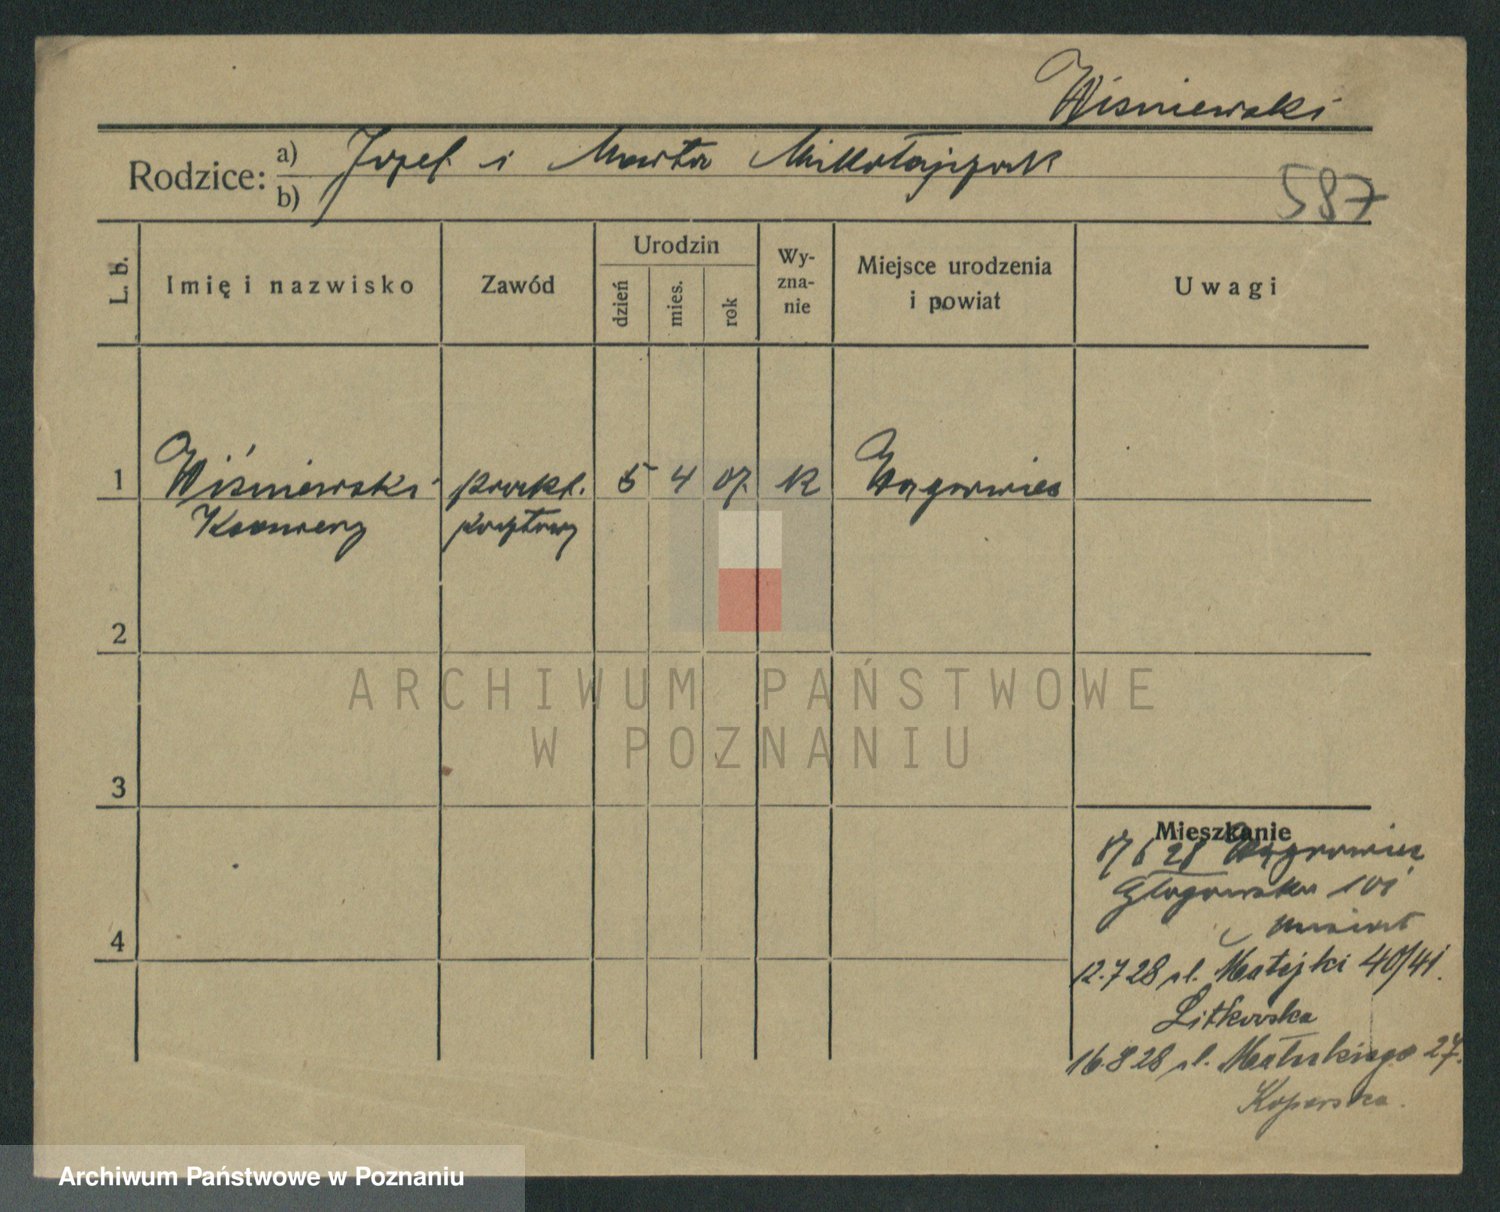 Wiśniewski
Rodzice: a) Józef i Marta Mikołajczak
b)
587
L. b.
Imię i nazwisko
Zawód
Urodzin
dzień
mies.
rok
Wy-
zna-
nie
Miejsce urodzenia
i powiat
Uwagi
1 Wiśniewski prakt. 5 4 07. K Wągrowiec
Kazimierz pocztowy
2
3
4
Mieszkanie
28 Wągrowiec
Głogowska 101
12.7 28 ul. Matejki 40/41.
Litkowska
16.8 28 ul. 27.
Koperska.
ARCHIWUM PAŃSTWOWE
W POZNANIU
Archiwum Państwowe w Poznaniu